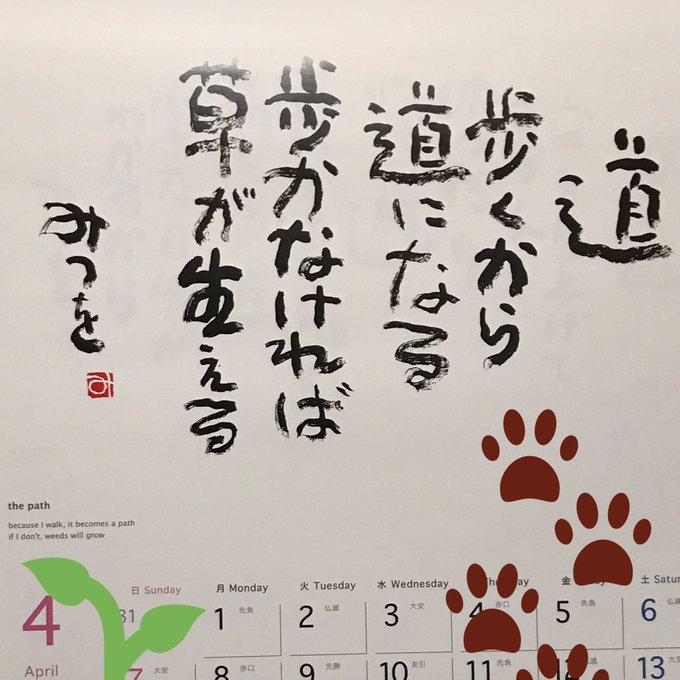 道
歩くから
道になる
歩かなければ
草が生える
みつを
み
the path
because I walk, it becomes a path
if I don't, weeds will grow
4
April
日 Sunday 月 Monday 火 Tuesday 水 Wednesday 金 土 Satur
31 1 先負 2 仏滅 3 大安 4 赤口 5 先負 6 仏滅
7 大安 8 赤口 9 先勝 10 友引 11 先負 12 13 大安